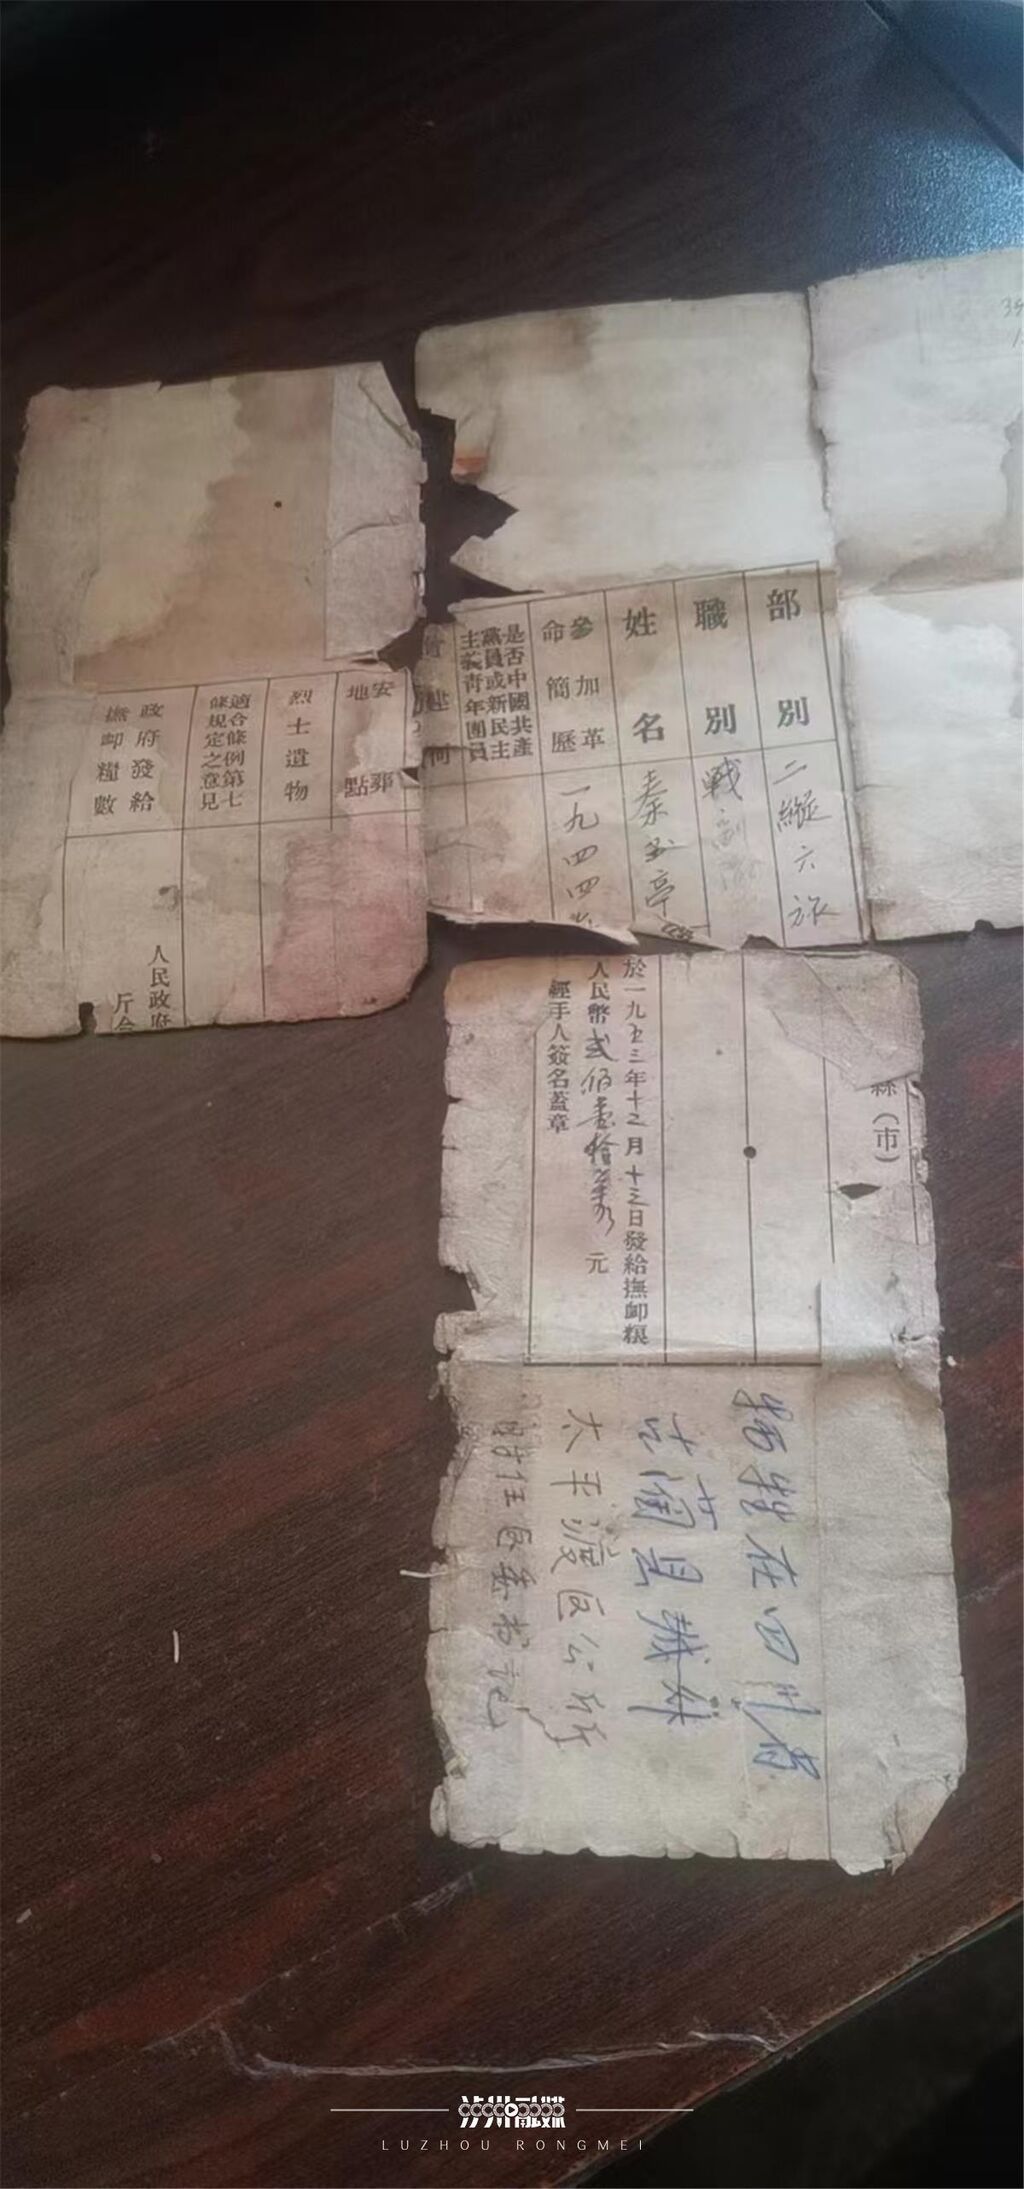 部別 二縱六旅
職別 戰
姓名 秦玉亭
參加革命簡歷 一九四四
是否中國共產黨員或新民主主義青年團員
何
安葬地點
烈士遺物
適合條例第七條規定之意見
政府發給撫卹糧數
人民政府
斤合
縣(市)
於一九五三年十二月十三日發給撫卹糧
人民幣貳佰壹拾萬元
經手人簽名蓋章
牺牲在四川省
古蔺县城外
太平渡区公所
时任区委书记
泸州融媒
LUZHOU RONGMEI